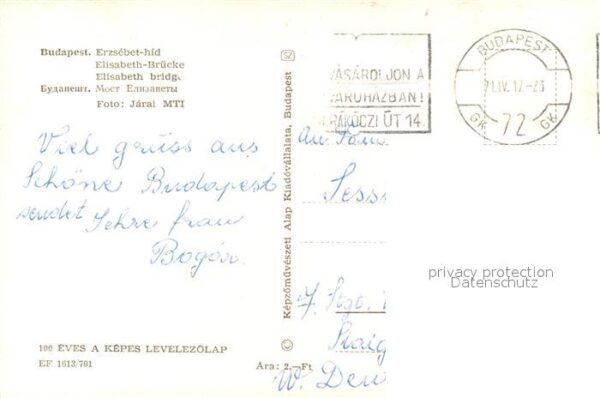 Budapest. Erzsébet-híd
Elisabeth-Brücke
Elisabeth bridge
Будапешт. Мост Елизаветы
Foto: Járai MTI
Viel grüss aus
Schöne Budapest
sendet Sehre frau
Bogár.
100 ÉVES A KÉPES LEVELEZŐLAP
EF 1613/701
Képzőművészeti Alap Kiadóvállalata, Budapest
Ára: 2,—Ft
VÁSÁROLJON A
ÁRUHÁZBAN!
RÁKÓCZI ÚT 14.
BUDAPEST
71.IV.17.-23
GK 72 GK
An Fam
Sess
7. Stgt.
W. Deu
privacy protection
Datenschutz